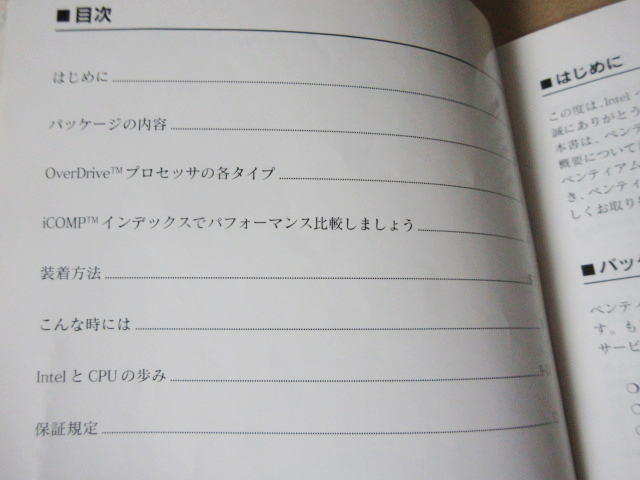 ■目次
はじめに
パッケージの内容
OverDrive™プロセッサの各タイプ
iCOMP™インデックスでパフォーマンス比較しましょう
装着方法
こんな時には
IntelとCPUの歩み
保証規定
■はじめに
この度は、Intel
誠にありがとう
本書は、ペンテ
概要について
ペンティアム
き、ペンティ
しくお取り
■パッ
ペンティ
す。も
サービ